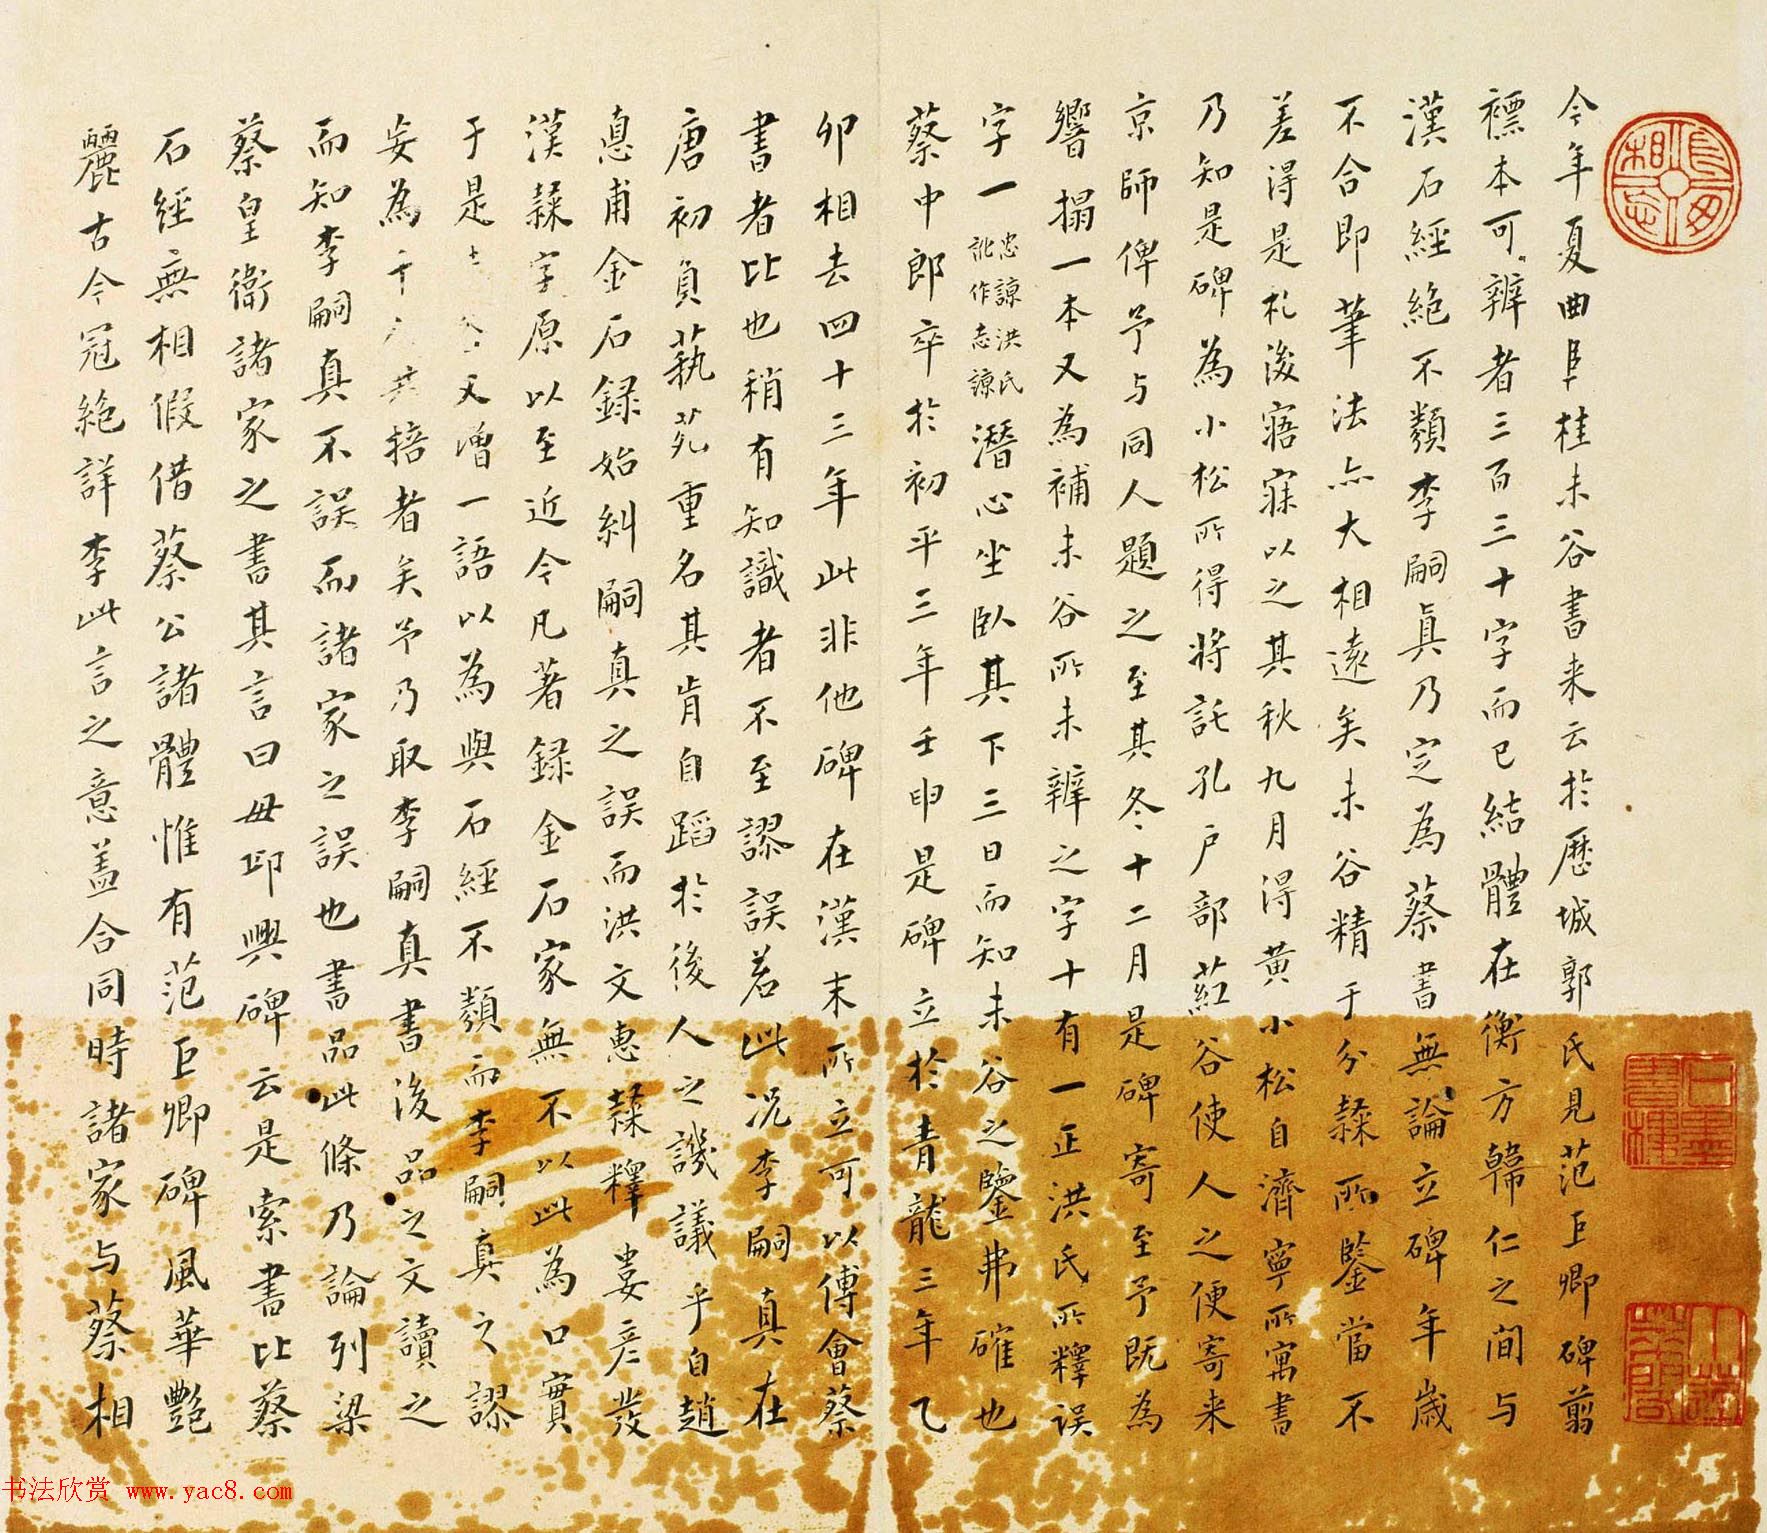 今年夏曲阜桂未谷書来云於歷城郭氏見范巨卿碑翦
褾本可辨者三百三十字而已結體在衡方韓仁之間与
漢石經絶不類李嗣真乃定為蔡書無論立碑年歲
不合即筆法亦大相遠矣未谷精于分隸所鑒當不
差得是札後寤寐以之其秋九月得黄小松自濟寧所寓書
乃知是碑為小松所得將託孔户部葒谷使人之便寄来
京師俾予与同人題之至其冬十二月是碑寄至予既為
響搨一本又為補未谷所未辨之字十有一正洪氏所釋误
字一忠諒洪氏訛作志諒潛心坐卧其下三日而知未谷之鑒弗確也
蔡中郎卒於初平三年壬申是碑立於青龍三年乙
卯相去四十三年此非他碑在漢末所立可以傅會蔡
書者比也稍有知識者不至謬誤若此況李嗣真在
唐初負蓺苑重名其肯自蹈於後人之譏議乎自趙
悳甫金石録始糾嗣真之誤而洪文惠隸釋婁彦發
漢隸字原以至近今凡著録金石家無不以此為口實
于是 又增一語以為與石經不類而李嗣真之謬
妄為 掊者矣予乃取李嗣真書後品之文讀之
而知李嗣真不誤而諸家之誤也書品此條乃論列梁
蔡皇衛諸家之書其言曰毌邱興碑云是索書比蔡
石經無相假借蔡公諸體惟有范巨卿碑風華艷
麗古今冠絶詳李此言之意盖合同時諸家与蔡相
书法欣赏 www.yac8.com